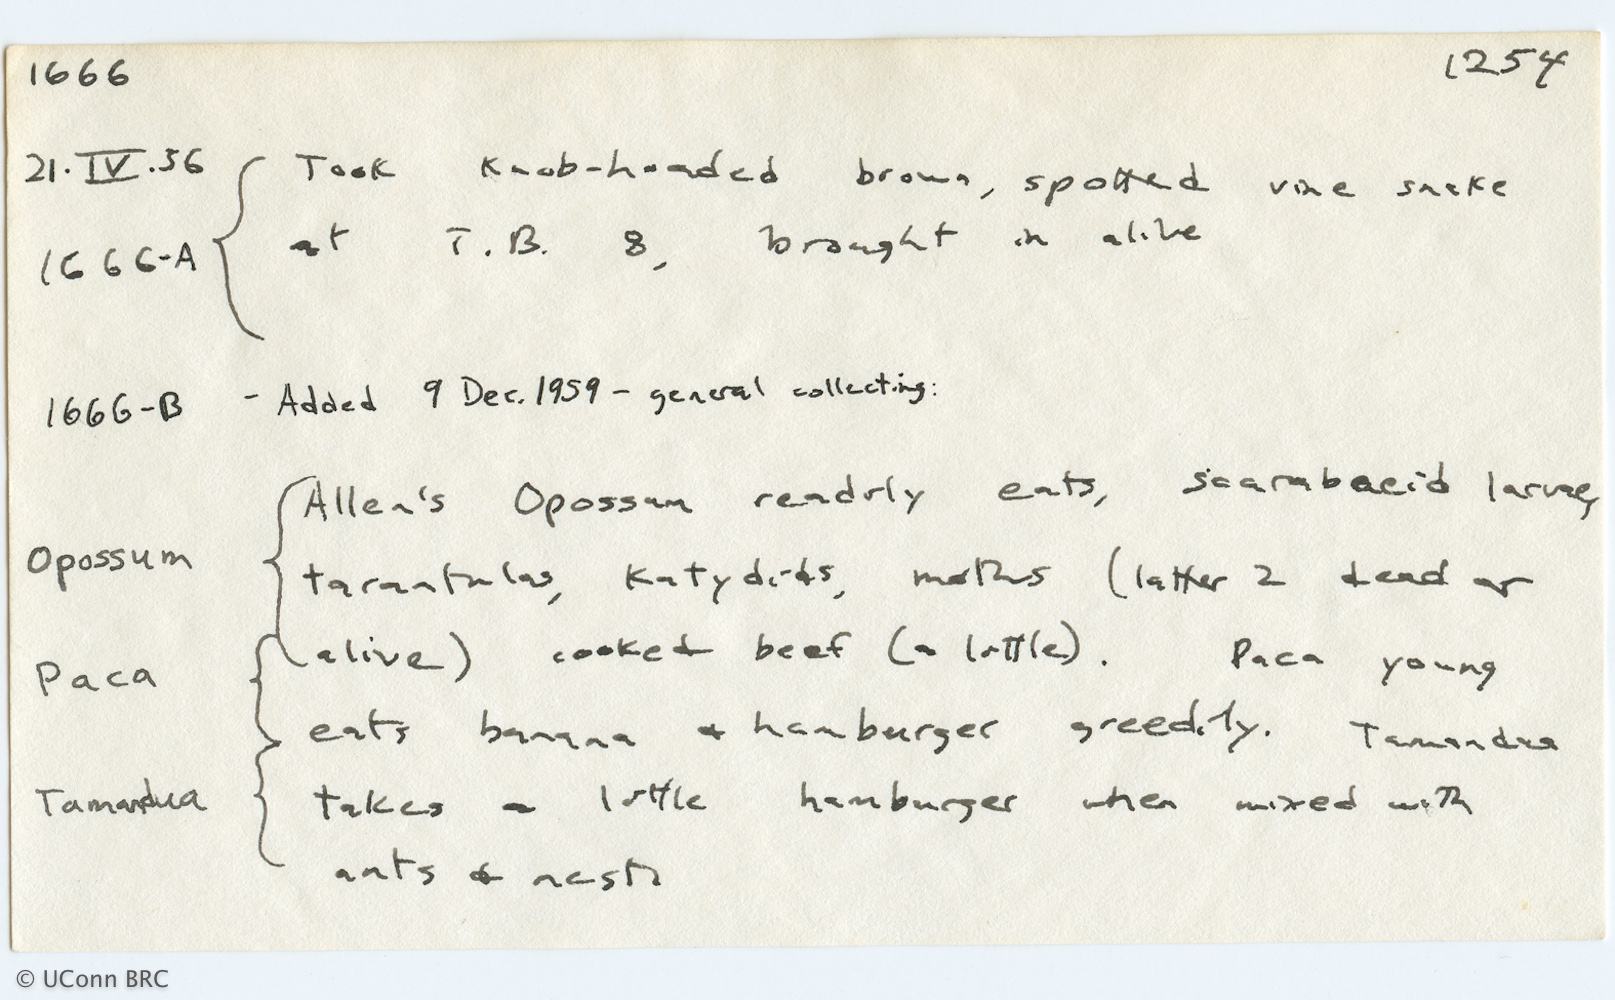 1666 1254
21.IV.56 Took knob-headed brown, spotted vine snake
1666-A at T.B. 8, brought in alive
1666-B - Added 9 Dec. 1959 - general collecting:
Allen's Opossum readily eats, scarabaeid larvae,
Opossum
tarantulas, katydids, moths (latter 2 dead or
Paca alive) cooked beef (a little). Paca young
eats banana & hamburger greedily. Tamandua
Tamandua takes a little hamburger when mixed with
ants & nest
© UConn BRC